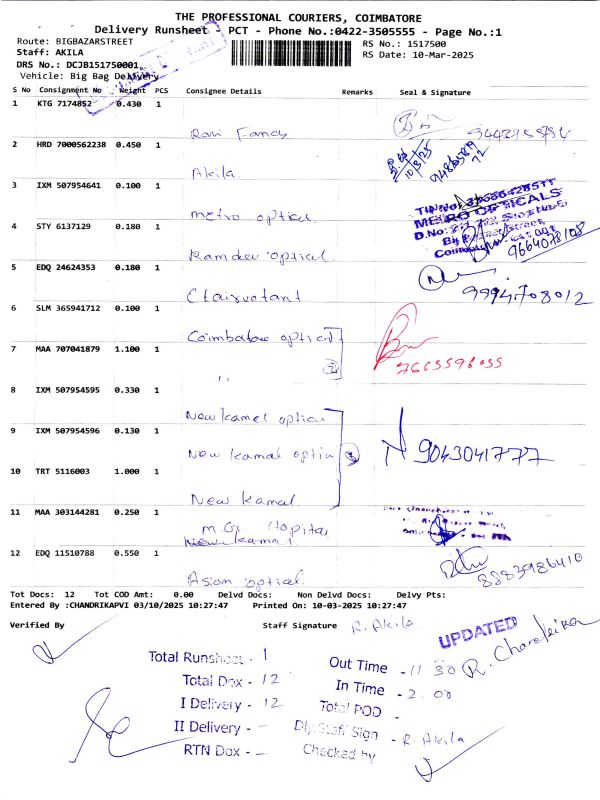 THE PROFESSIONAL COURIERS, COIMBATORE
Delivery Runsheet - PCT - Phone No.:0422-3505555 - Page No.:1
Route: BIGBAZARSTREET
RS No.: 1517500
Staff: AKILA
RS Date: 10-Mar-2025
DRS No.: DCJB151750001
Vehicle: Big Bag Delivery
S No Consignment No Weight PCS Consignee Details Remarks Seal & Signature
1 KTG 7174852 0.430 1
Ravi Fancy
2 HRD 7000562238 0.450 1
Akila
10/3/25
3 IXM 507954641 0.100 1
metro optical
METRO OPTICALS
4 STY 6137129 0.180 1
Ramdev optical
9664078108
5 EDQ 24624353 0.180 1
Clairvotant
9994708012
6 SLM 365941712 0.100 1
Coimbatore optical
7 MAA 707041879 1.100 1
2
7665596055
8 IXM 507954595 0.330 1
New kamal optical
9 IXM 507954596 0.130 1
New kamal optical
9043041777
10 TRT 5116003 1.000 1
New Kamal
11 MAA 303144281 0.250 1
M.G. Hopital
New kamal
12 EDQ 11510788 0.550 1
Asian optical
8883986410
Tot Docs: 12 Tot COD Amt: 0.00 Delvd Docs: Non Delvd Docs: Delvy Pts:
Entered By :CHANDRIKAPVI 03/10/2025 10:27:47 Printed On: 10-03-2025 10:27:47
Verified By Staff Signature R. Akila
UPDATED
R. Chandrika
Total Runsheet - 1
Out Time - 11 30
Total Dox - 12
In Time - 2.00
I Delivery - 12
Total POD -
II Delivery -
Dly.Staff Sign - R. Akila
RTN Dox -
Checked by